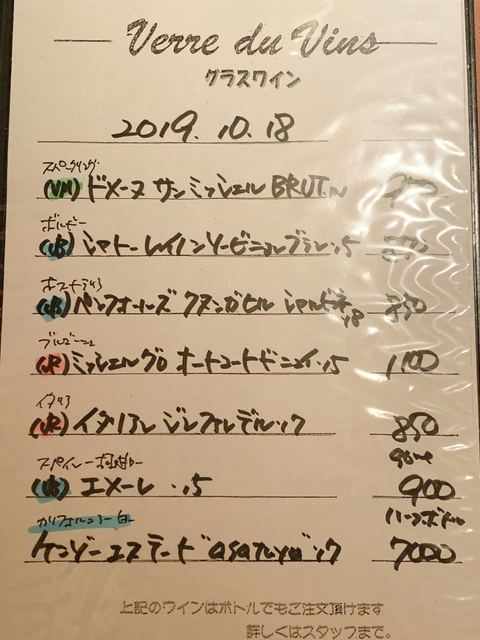 Verre du Vins
グラスワイン
2019.10.18
スパークリング
ドメーヌ サン ミッシェル BRUT
ボルドー
シャトー レイノン ソービニョンブラン .15
オーストラリア
ペンフォールズ クヌンガヒル シャルドネ .18 850
ブルゴーニュ
ミッシェルグロ オートコートドニュイ .15 1100
イタリア
イタリアン 850
スペイン 極甘 90ml
エメーレ .15 900
カリフォルニア 白 ハーフボトル
ケンゾーエステート "asatsuyu" 17 7000
上記のワインはボトルでもご注文頂けます
詳しくはスタッフまで。